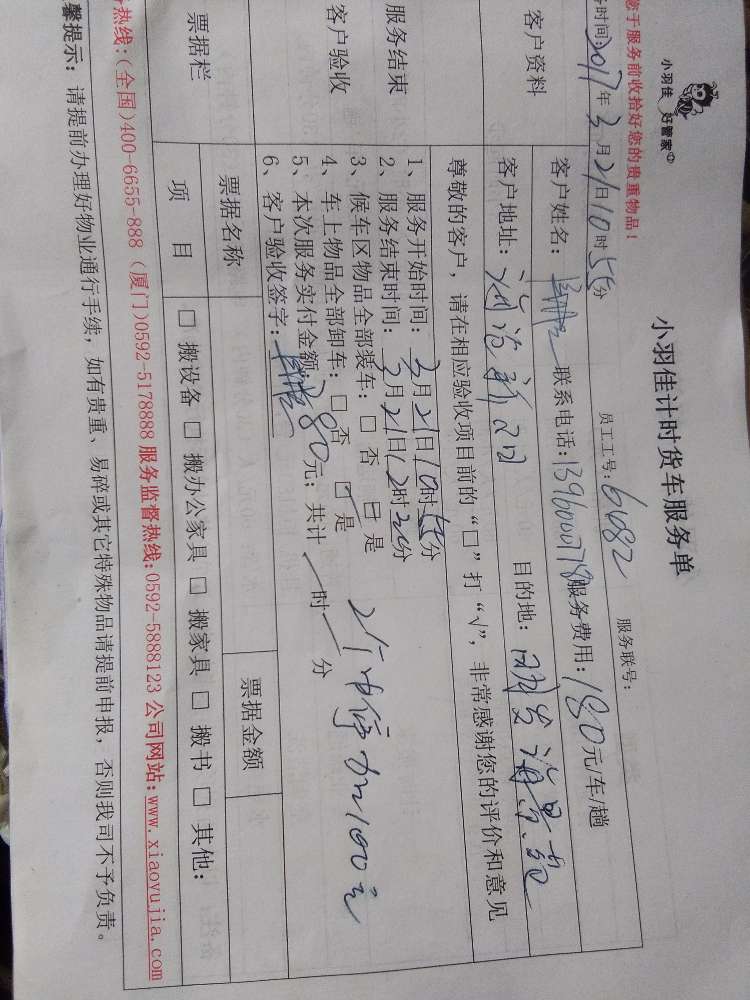 小羽佳 好管家
小羽佳计时货车服务单
您于服务前收拾好您的贵重物品！
员工工号：6682 服务联号：
务时间：2017年3月21日10时55分
客户资料
客户姓名： 联系电话： 服务费用：180元/车/趟
客户地址： 目的地：
尊敬的客户，请在相应验收项目前的“□”打“√”，非常感谢您的评价和意见
服务结束
客户验收
1、服务开始时间：3月21日10时55分
2、服务结束时间：3月21日12时30分
3、候车区物品全部装车：□ 否 □ 是
4、车上物品全部卸车：□ 否 ☑ 是
5、本次服务实付金额：280元；共计 时 分
6、客户验收签字：
100元
票据栏
票据名称 票据金额
项 目 □ 搬设备 □ 搬办公家具 □ 搬家具 □ 搬书 □ 其他：
务热线：(全国)400-6655-888 (厦门)0592-5178888 服务监督热线：0592-5888123 公司网站：www.xiaoyujia.com
馨提示：请提前办理好物业通行手续，如有贵重、易碎或其它特殊物品请提前申报，否则我司不予负责。